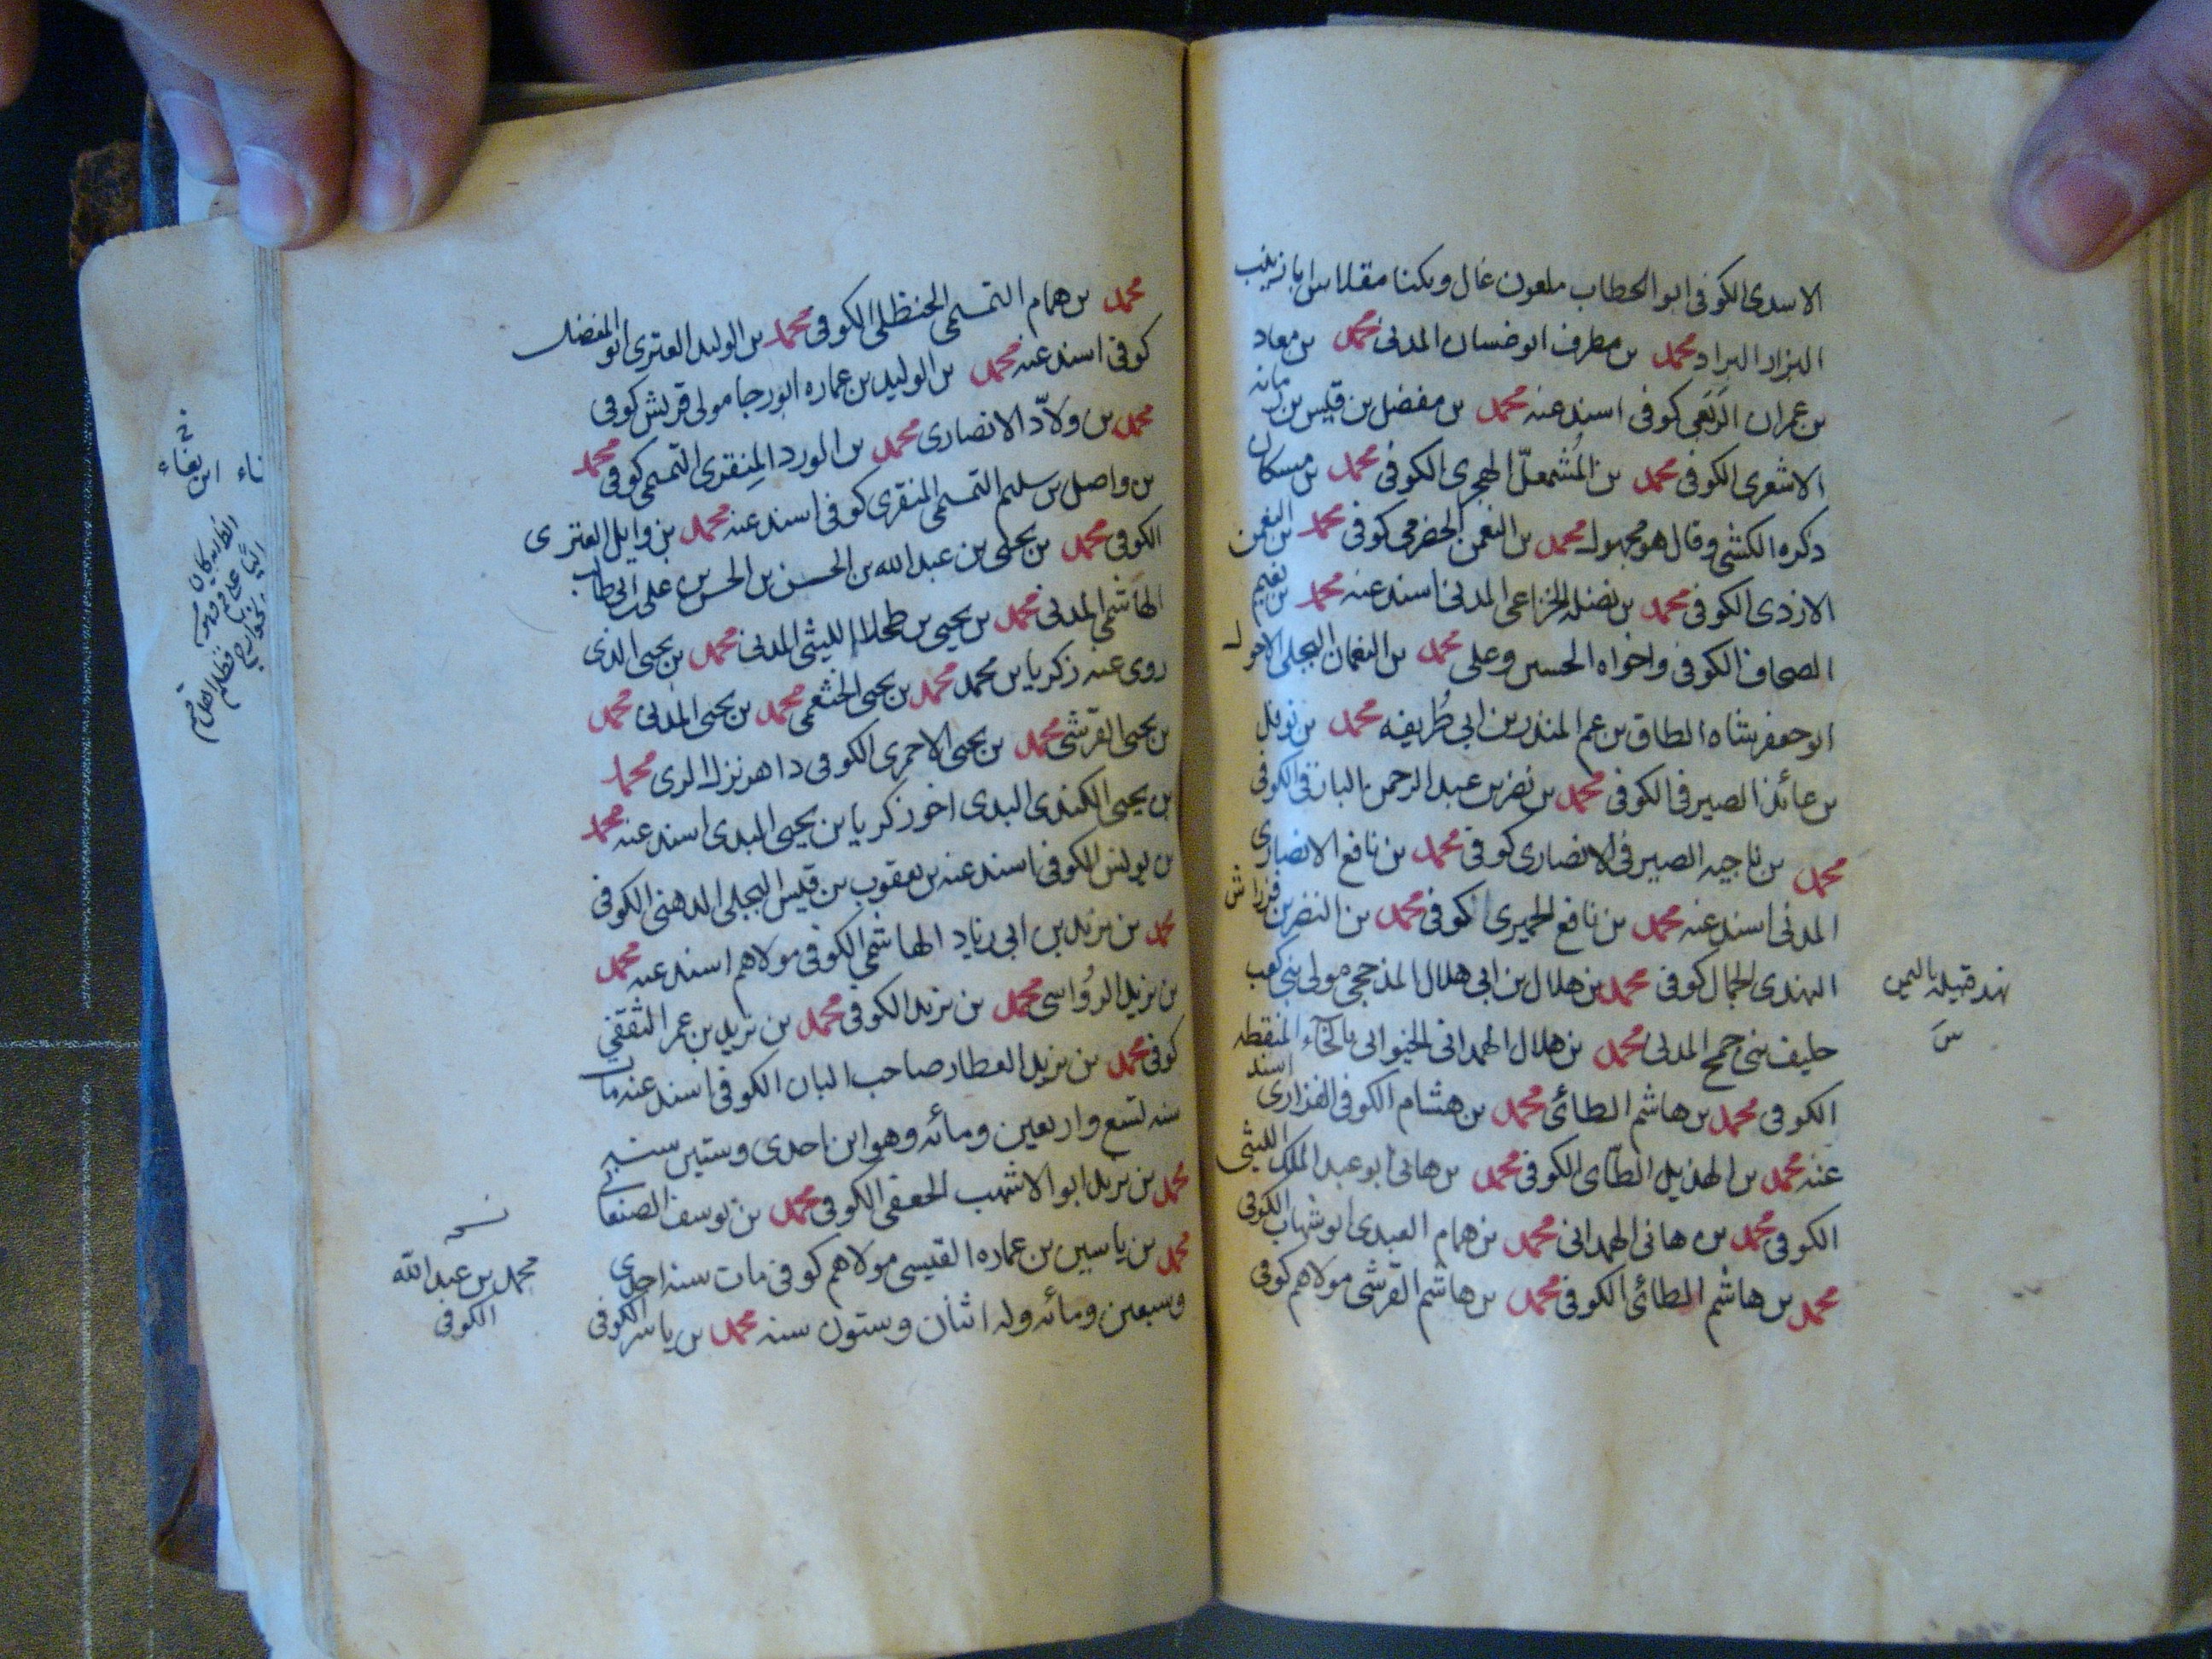 الاسدى الكوفى ابو الخطاب ملعون غال ويكنا مقلاس ابا زينب
البزاز البراد محمد بن مطرف ابو غسان المدنى محمد بن معاد
بن عمران الربعى كوفى اسند عنه محمد بن مفضل بن قيس بن رمانه
الاشعرى الكوفى محمد بن المُشمعلّ الهجرى الكوفى محمد بن مسكان
ذكره الكشى وقال هو مجهول محمد بن النعمن الحضرمى كوفى محمد بن النعمن
الازدى الكوفى محمد بن نضله الخزاعى المدنى اسند عنه محمد بن نعيم
الصحاف الكوفى واخواه الحسين وعلى محمد بن النعمان البجلى الاحول
ابو جعفر شاه الطاق بن عم المنذر بن ابى طُريفه محمد بن نوفل
بن عائذ الصيرفى الكوفى محمد بن نصر بن عبد الرحمن البارقى الكوفى
محمد بن ناجيه الصيرفى الانصارى كوفى محمد بن نافع الانصارى
المدنى اسند عنه محمد بن نافع الحميرى الكوفى محمد بن النضر بن قرواش
النهدى الجمال كوفى محمد بن هلال بن ابى هلال المذحجى مولى بنى كعب
حليف بنى جمح المدنى محمد بن هلال الهمدانى الخيوانى بالخاء المنقطه
الكوفى محمد بن هاشم الطائى محمد بن هشام الكوفى الفزارى اسند
عنه محمد بن الهذيل الطائى الكوفى محمد بن هانى ابو عبد الملك الليثى
الكوفى محمد بن هانى الهمدانى محمد بن همام العبدى ابو شهاب الكوفى
محمد بن هاشم الطائى الكوفى محمد بن هاشم القرشى مولاهم كوفى
نهد قبيله باليمن
س
محمد بن همام التميمى الحنظلى الكوفى محمد بن الوليد العنزى ابو المفضل
كوفى اسند عنه محمد بن الوليد بن عماره ابو رجا مولى قريش كوفى
محمد بن ولاّد الانصارى محمد بن الورد المِنقرى التميمى كوفى محمد
بن واصل بن سليم التميمى المنقرى كوفى اسند عنه محمد بن وايل العنزى
الكوفى محمد بن يحيى بن عبد الله بن الحسن بن الحسن بن على بن ابى طالب
الهاشمى المدنى محمد بن يحيى بن طحلاا الليثى المدنى محمد بن يحيى الذى
روى عنه زكريا بن محمد محمد بن يحيى الخثعمى محمد بن يحيى المدنى محمد
بن يحيى القرشى محمد بن يحيى الاحمرى الكوفى داهر نزل الرى محمد
بن يحيى الكندى البدى اخو زكريا بن يحيى البدى اسند عنه محمد
بن يونس الكوفى اسند عنه بن يعقوب بن قيس البجلى الدهنى الكوفى
محمد بن يزيد بن ابى زياد الهاشمى الكوفى مولاهم اسند عنه محمد
بن يزيد الرؤاسى محمد بن يزيد الكوفى محمد بن يزيد بن عمر الثقفى
كوفى محمد بن يزيد العطار صاحب البان الكوفى اسند عنه مات
سنه تسع واربعين ومائه وهو ابن احدى وستين سنه
محمد بن يزيد ابو الاشهب الجعفى الكوفى محمد بن يوسف الصنعانى
محمد بن ياسين بن عماره القيسى مولاهم كوفى مات سنه احدى
وسبعين ومائه وله اثنان وستون سنه محمد بن ياسر الكوفى
نسخه
محمد بن عبد الله
الكوفى